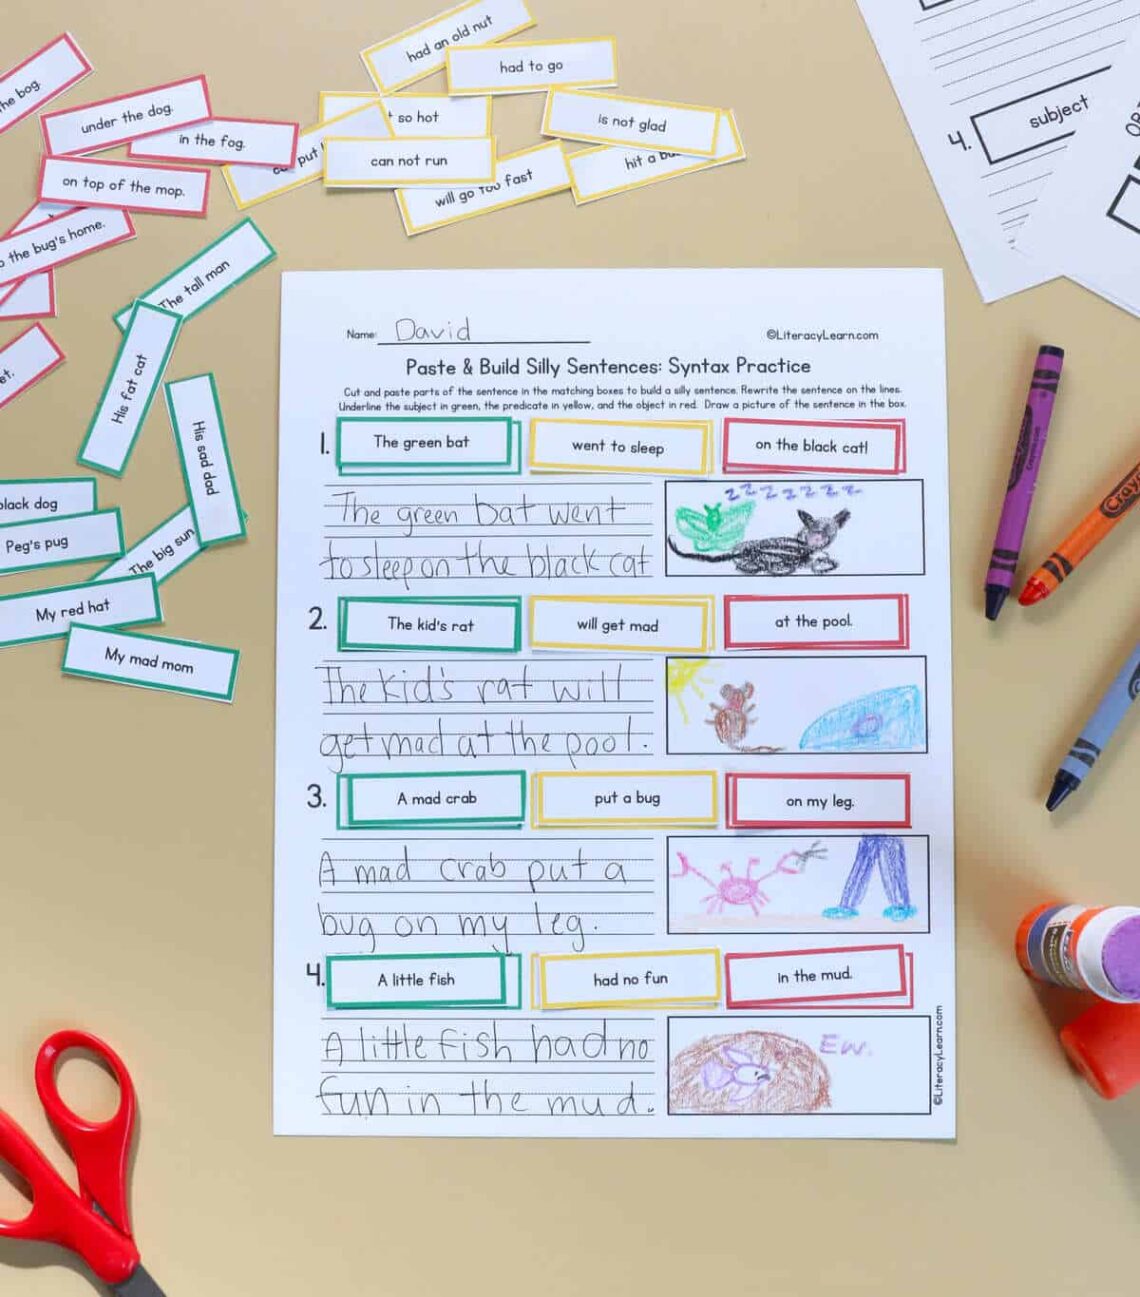 had an old nut
had to go
so hot
is not glad
can not run
hit a
put
will go too fast
he bog.
under the dog.
in the fog.
on top of the mop.
the bug's home.
et.
The tall man
His fat cat
His sad dad
black dog
Peg's pug
The big sun
My red hat
My mad mom
4. subject
Name: David
©LiteracyLearn.com
Paste & Build Silly Sentences: Syntax Practice
Cut and paste parts of the sentence in the matching boxes to build a silly sentence. Rewrite the sentence on the lines.
Underline the subject in green, the predicate in yellow, and the object in red. Draw a picture of the sentence in the box.
1. The green bat went to sleep on the black cat!
The green bat went
to sleep on the black cat
zzzzzzzz
2. The kid's rat will get mad at the pool.
The kid's rat will
get mad at the pool.
3. A mad crab put a bug on my leg.
A mad crab put a
bug on my leg.
4. A little fish had no fun in the mud.
A little fish had no
fun in the mud.
Ew.
©LiteracyLearn.com
Crayola